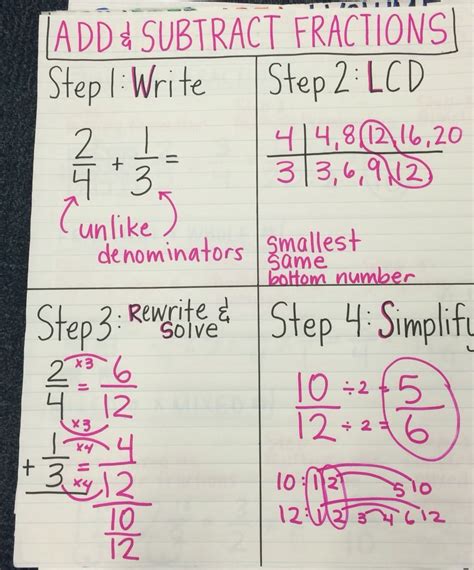 ADD & SUBTRACT FRACTIONS
Step 1: Write
2/4 + 1/3 =
unlike
denominators
Step 2: LCD
4 | 4, 8, 12, 16, 20
3 | 3, 6, 9, 12
smallest
same
bottom number
Step 3: Rewrite &
Solve
2/4 = 6/12
x3
x3
+ 1/3 = 4/12
x4
x4
10/12
Step 4: Simplify
10/12 ÷2 = 5/6
÷2 =
10: 1 2 5 10
12: 1 2 3 4 6 12